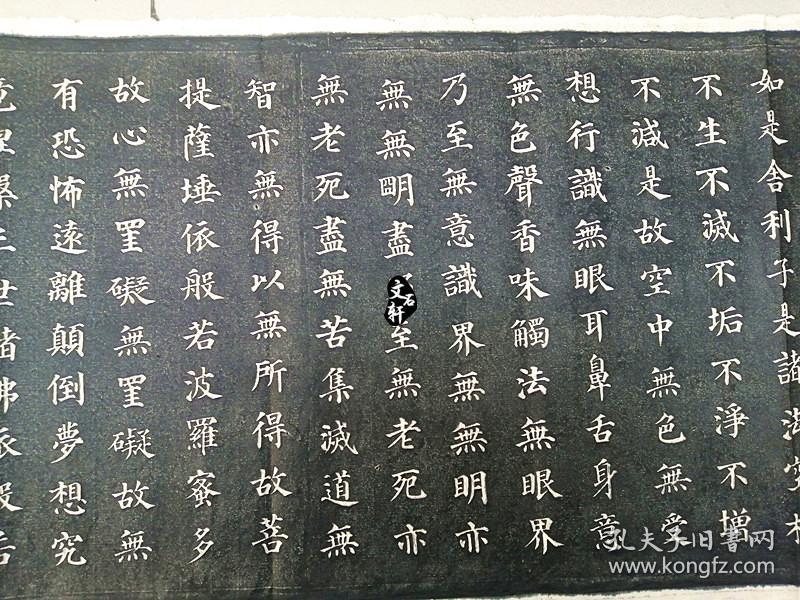 如是舍利子是諸法空相
不生不滅不垢不淨不增
不減是故空中無色無受
想行識無眼耳鼻舌身意
無色聲香味觸法無眼界
乃至無意識界無無明亦
無無明盡至無老死亦
無老死盡無苦集滅道無
智亦無得以無所得故菩
提薩埵依般若波羅蜜多
故心無罣礙無罣礙故無
有恐怖遠離顛倒夢想究
竟涅槃三世諸佛依般若
文石轩
孔夫子旧书网
www.kongfz.com